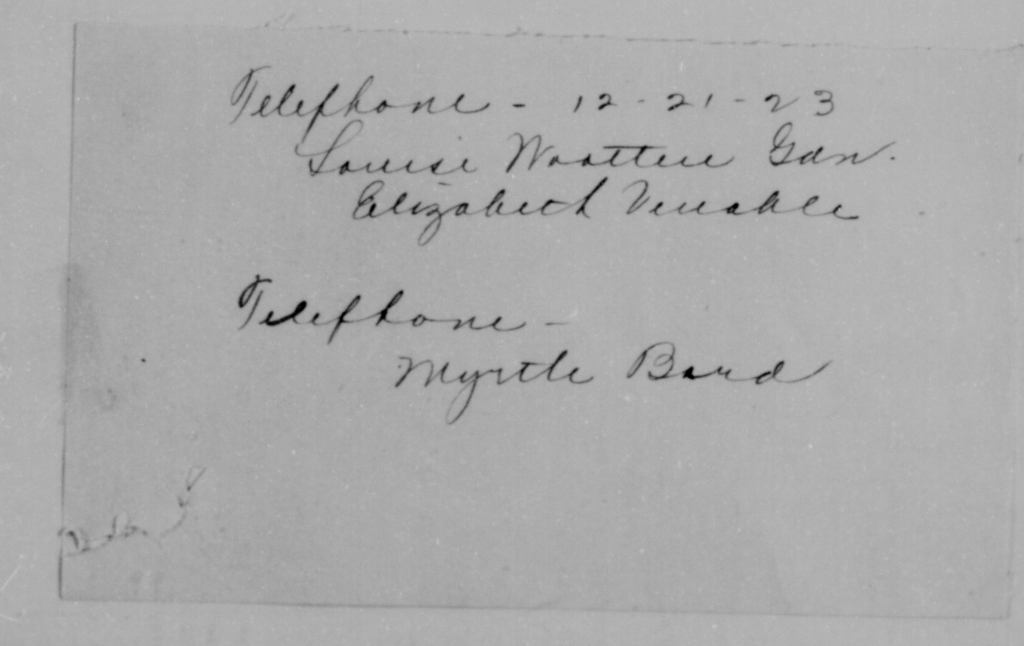 Telephone - 12-21-23
Louise Wootten Gdn.
Elizabeth Venable
Telephone -
Myrtle Bond